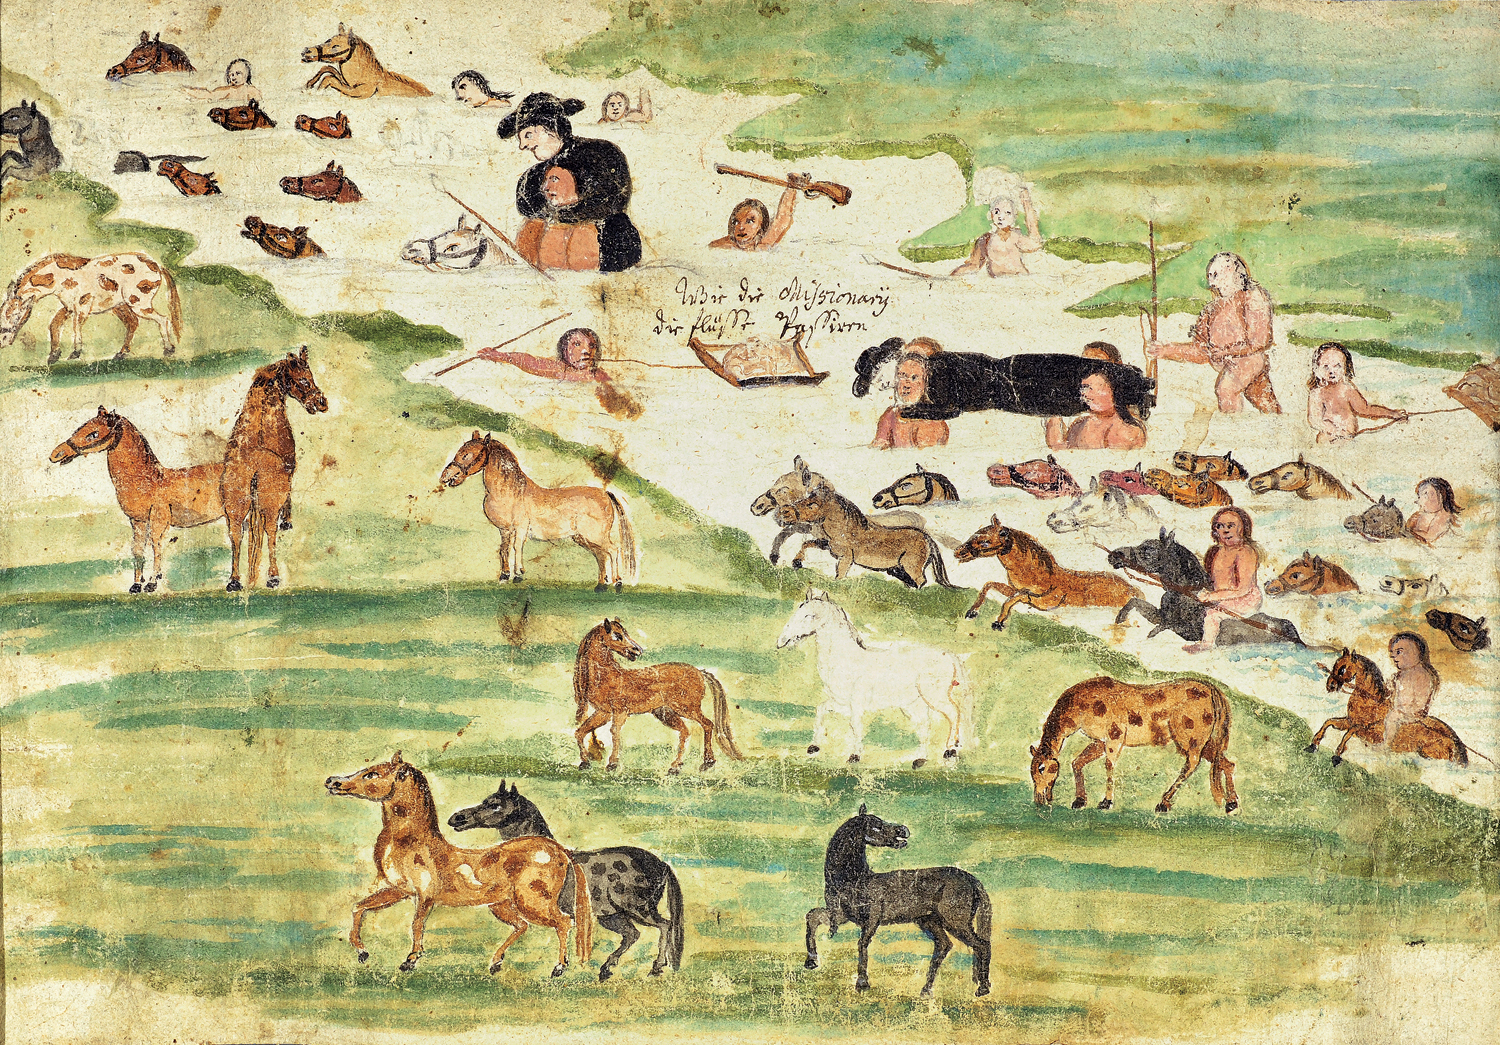 Wie die Missionarij
die flüsse Passiren